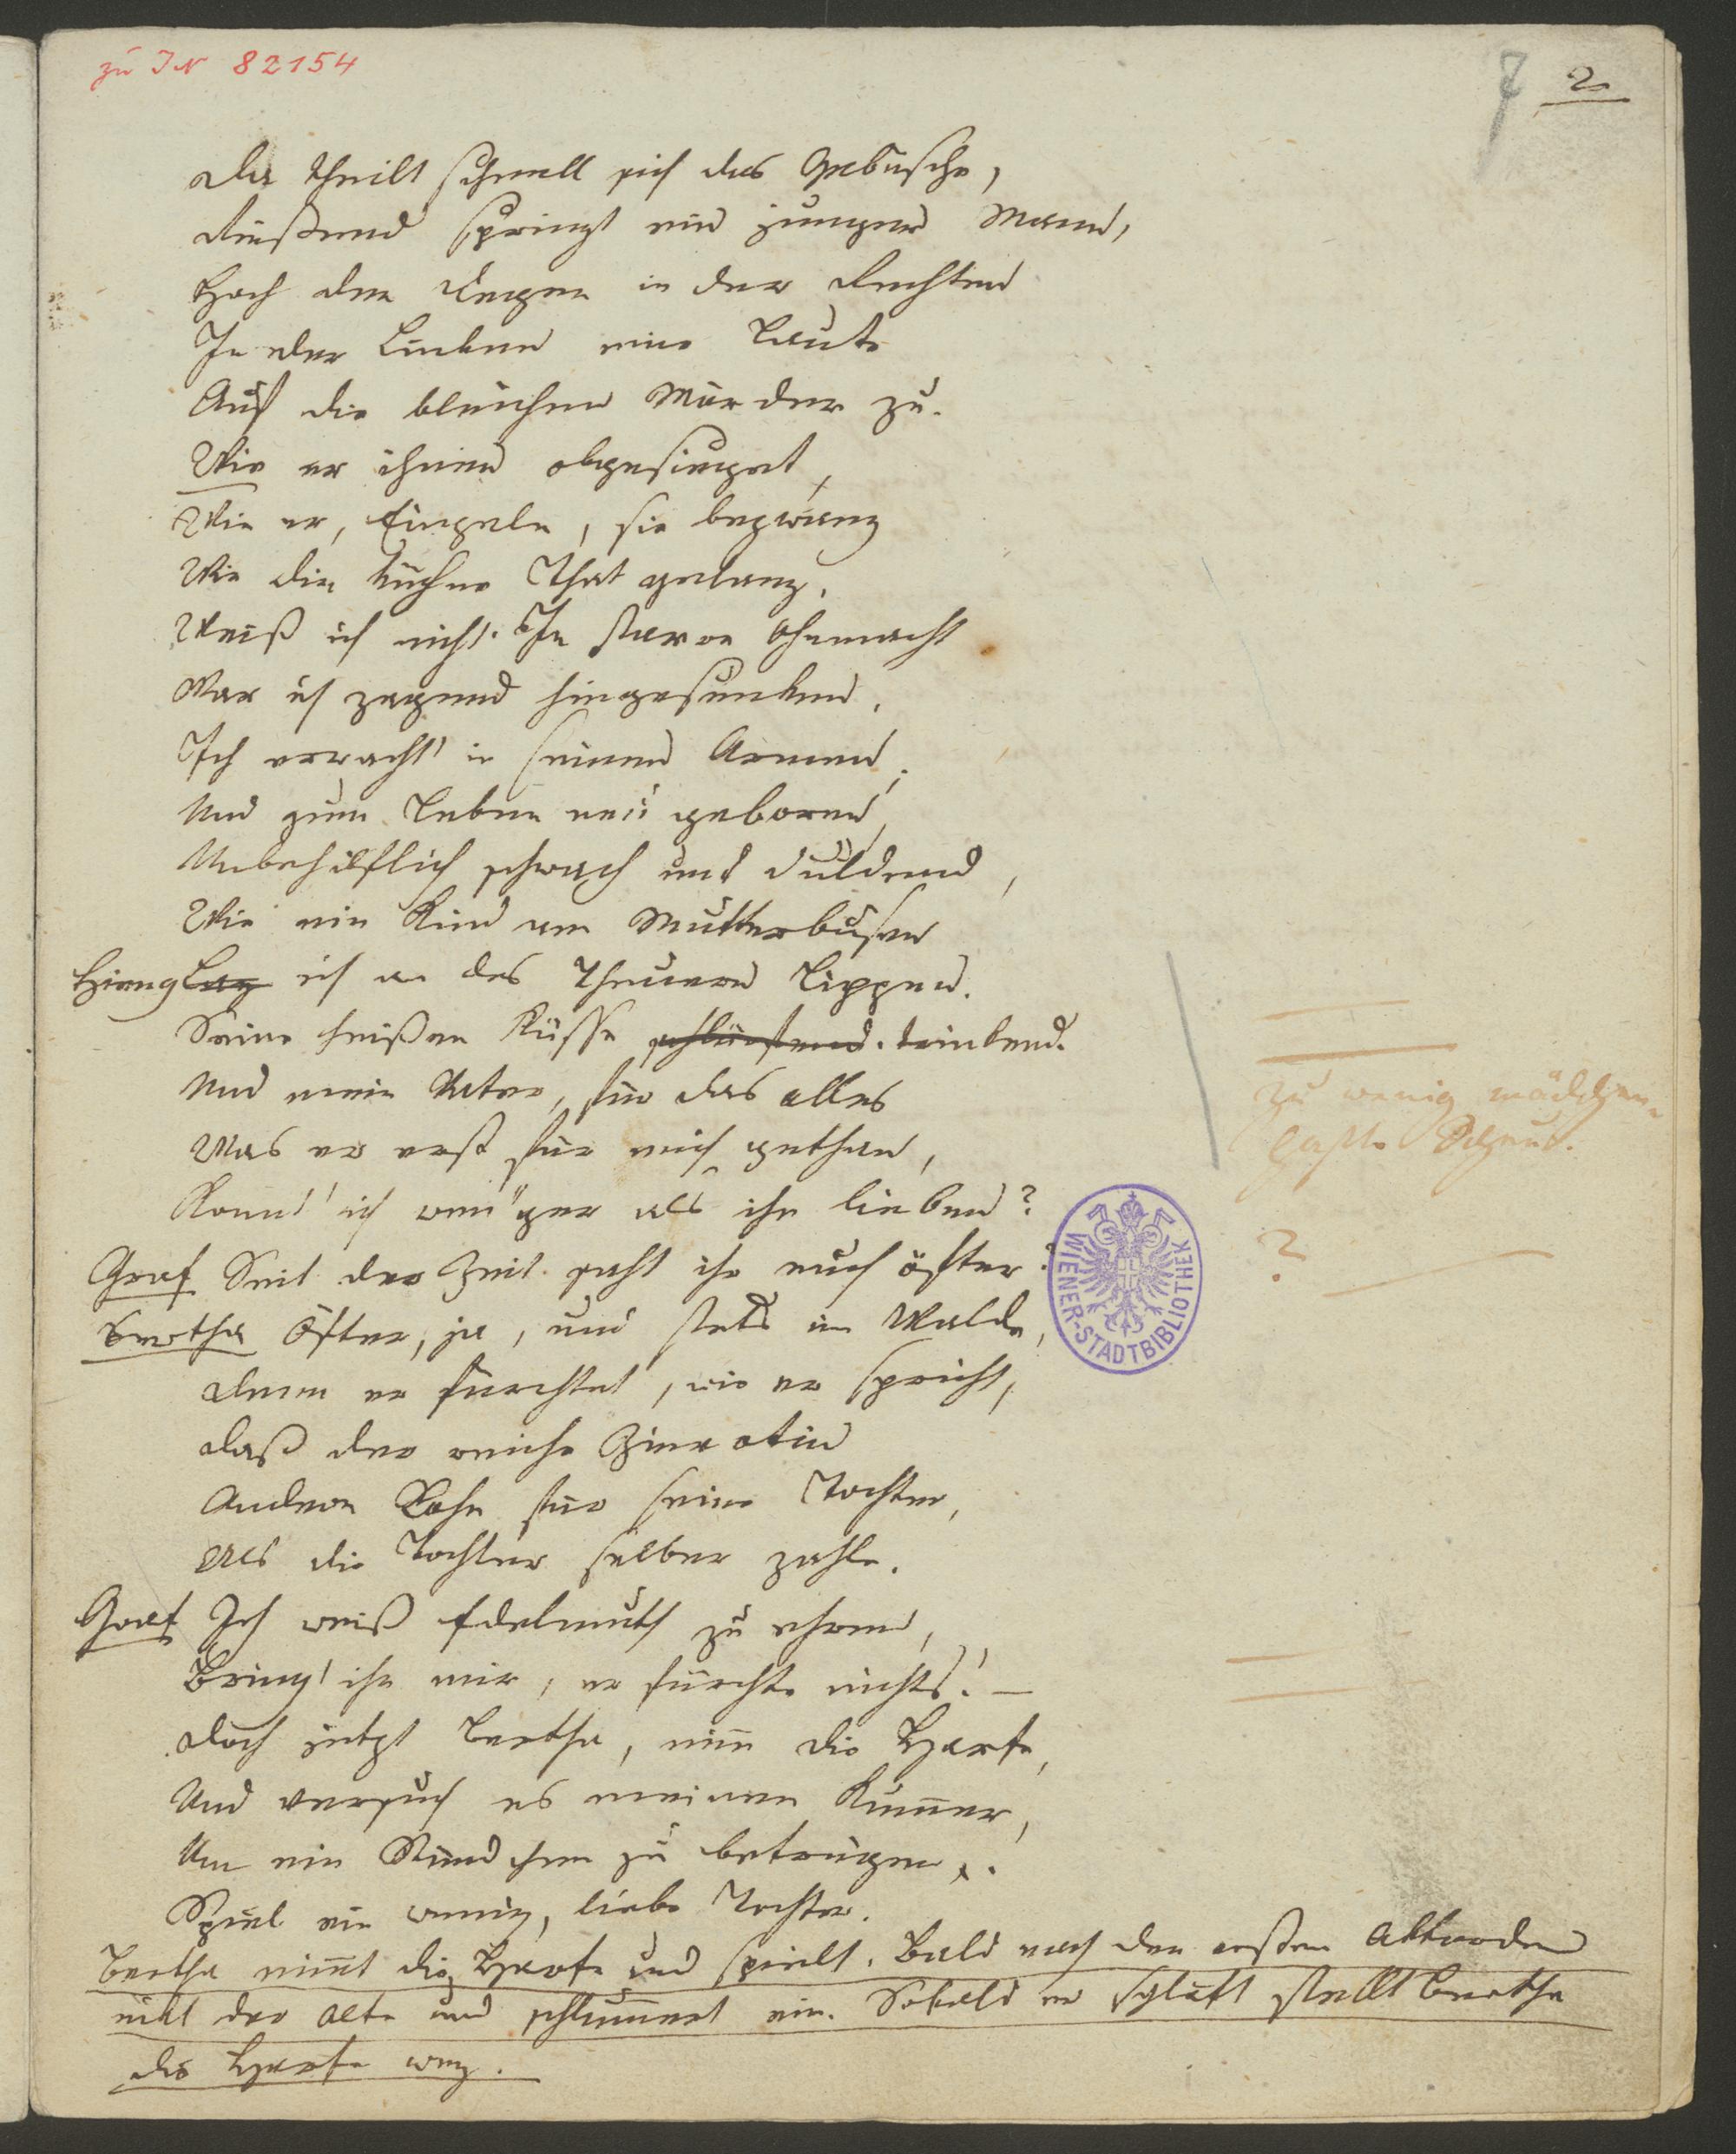 zu IN 82154
7 2
Da theilt schnell sich das Gebüsche,
Dießend springt ein junger Mann,
Hoch den Degen in der Rechten
In der Linken eine Laute
Auf die bleichen Mörder zu.
Wie er ihnen obgesieget,
Wie er, Einzeln, sie bezwang
Wie die kühne That gelang,
Weiß ich nicht. In starre Ohnmacht
War ich zagend hingesunken,
Ich erwacht' in seinen Armen,
Und zum Leben neu geboren,
Unbehilflich schwach und duldend,
Wie ein Kind am Mutterbusen
Hieng Lag ich an des Theuern Lippen.
Seine heißen Küsse schlürfend. trinkend.
Und mein Vater, für das alles
Was er erst für mich gethan,
Konnt' ich wen'ger als ihn lieben?
Graf Seit der Zeit saht ihr euch öfter?
Bertha Öfter, ja, und stets im Walde,
Denn er fürchtet, wie er spricht,
Daß der reiche Zierotin
Andern Lohn für seine Tochter,
Als die Tochter selber zahle.
Graf Ich weiß Edelmuth zu ehren,
Bring' ihn mir, er fürchte nichts! –
Doch jetzt Bertha, nim die Harfe,
Und versuch es meinen Kummer,
Um ein Stündchen zu betrügen.
Spiel ein wenig, liebe Tochter.
Bertha nimmt die Harfe und spielt. Bald nach den ersten Akkorden
nikt der Alte und schlummert ein. Sobald er schläft stellt Bertha
die Harfe weg.
zu wenig mädchen-
hafte Scheu.
?
WIENER-STADTBIBLIOTHEK